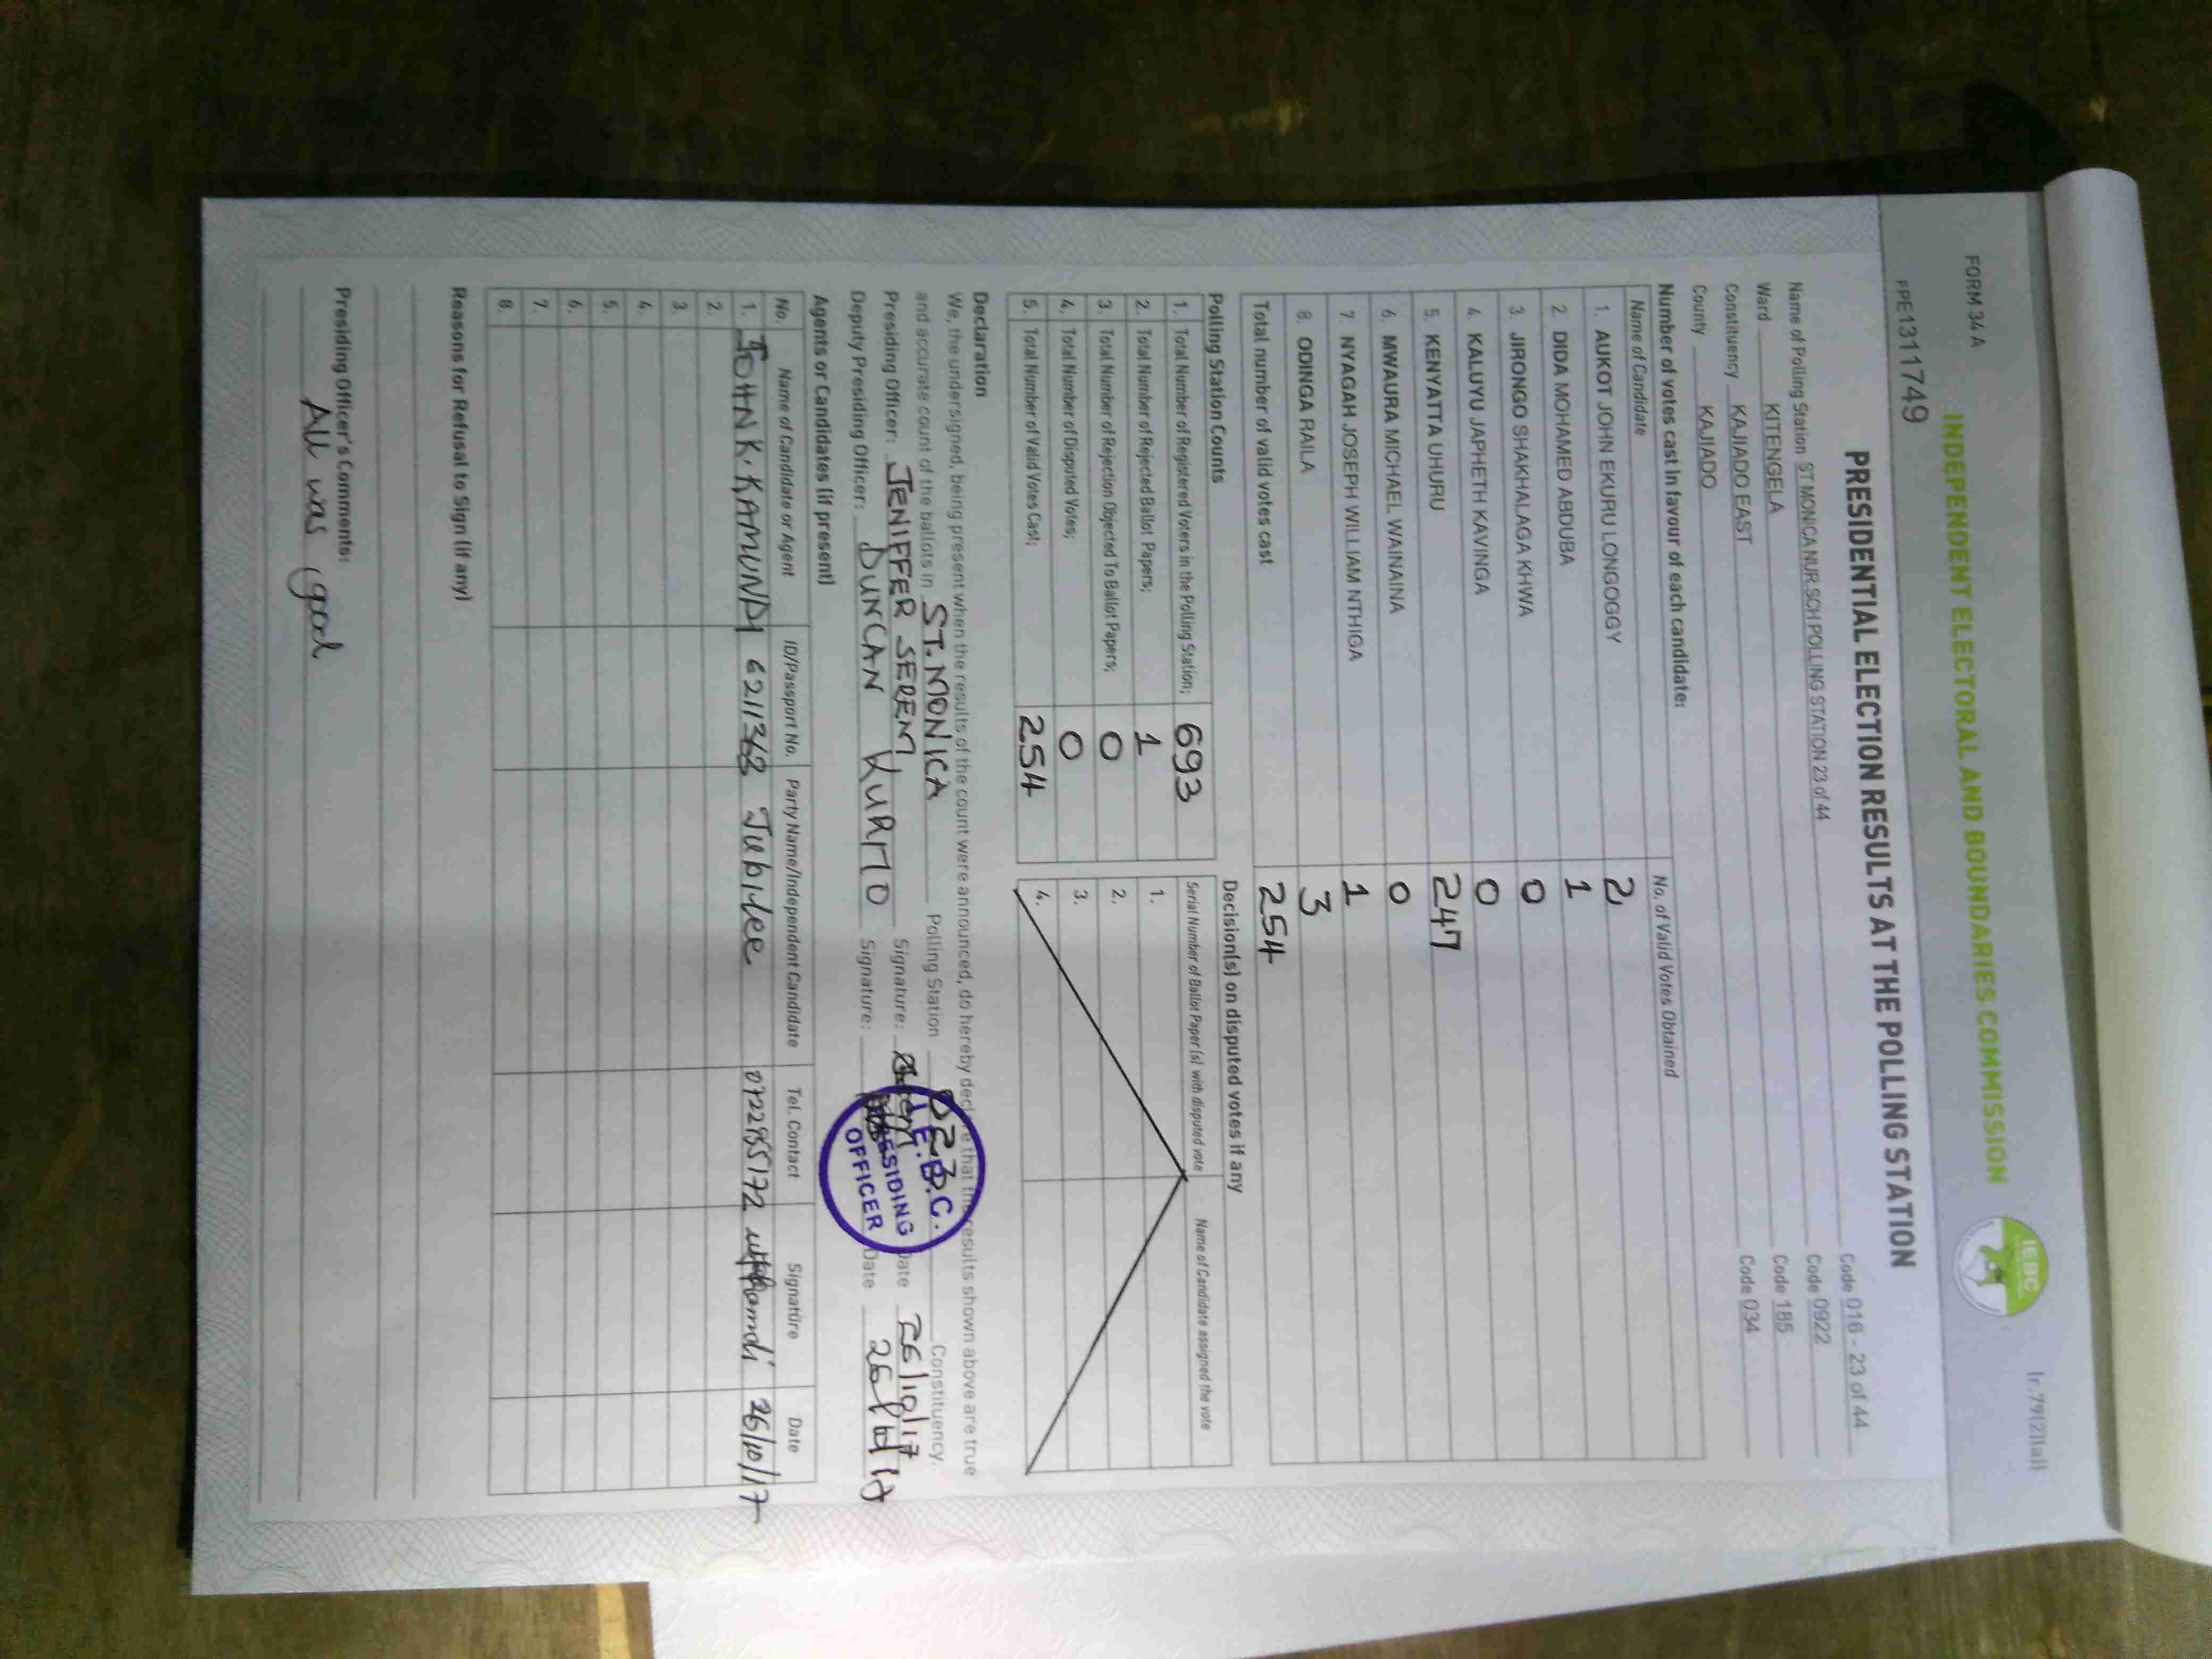 FORM 34 A
(r.79(2)(a))
INDEPENDENT ELECTORAL AND BOUNDARIES COMMISSION
IEBC
PPE1311749
PRESIDENTIAL ELECTION RESULTS AT THE POLLING STATION
Name of Polling Station ST MONICA NUR.SCH POLLING STATION 23 of 44 Code 016 - 23 of 44
Ward KITENGELA Code 0922
Constituency KAJIADO EAST Code 185
County KAJIADO Code 034
Number of votes cast in favour of each candidate:
Name of Candidate No. of Valid Votes Obtained
1. AUKOT JOHN EKURU LONGOGGY 2
2. DIDA MOHAMED ABDUBA 1
3. JIRONGO SHAKHALAGA KHWA 0
4. KALUYU JAPHETH KAVINGA 0
5. KENYATTA UHURU 247
6. MWAURA MICHAEL WAINAINA 0
7. NYAGAH JOSEPH WILLIAM NTHIGA 1
8. ODINGA RAILA 3
Total number of valid votes cast 254
Polling Station Counts
1. Total Number of Registered Voters in the Polling Station; 693
2. Total Number of Rejected Ballot Papers; 1
3. Total Number of Rejection Objected To Ballot Papers; 0
4. Total Number of Disputed Votes; 0
5. Total Number of Valid Votes Cast; 254
Decision(s) on disputed votes if any
Serial Number of Ballot Paper (s) with disputed vote Name of Candidate assigned the vote
1.
2.
3.
4.
Declaration
We, the undersigned, being present when the results of the count were announced, do hereby declare that the results shown above are true
and accurate count of the ballots in ST. MONICA Polling Station Constituency.
Presiding Officer: JENIFFER SEREM Signature: Date 26/10/17
Deputy Presiding Officer: DUNCAN Signature: Date
I.E.B.C.
PRESIDING
OFFICER
Agents or Candidates (if present)
No. Name of Candidate or Agent ID/Passport No. Party Name/Independent Candidate Tel. Contact Signature Date
1. JOHN K. KAMUNDI 6211363 Jubilee 0722955172 26/10/17
2.
3.
4.
5.
6.
7.
8.
Reasons for Refusal to Sign (if any)
Presiding Officer's Comments:
All was good